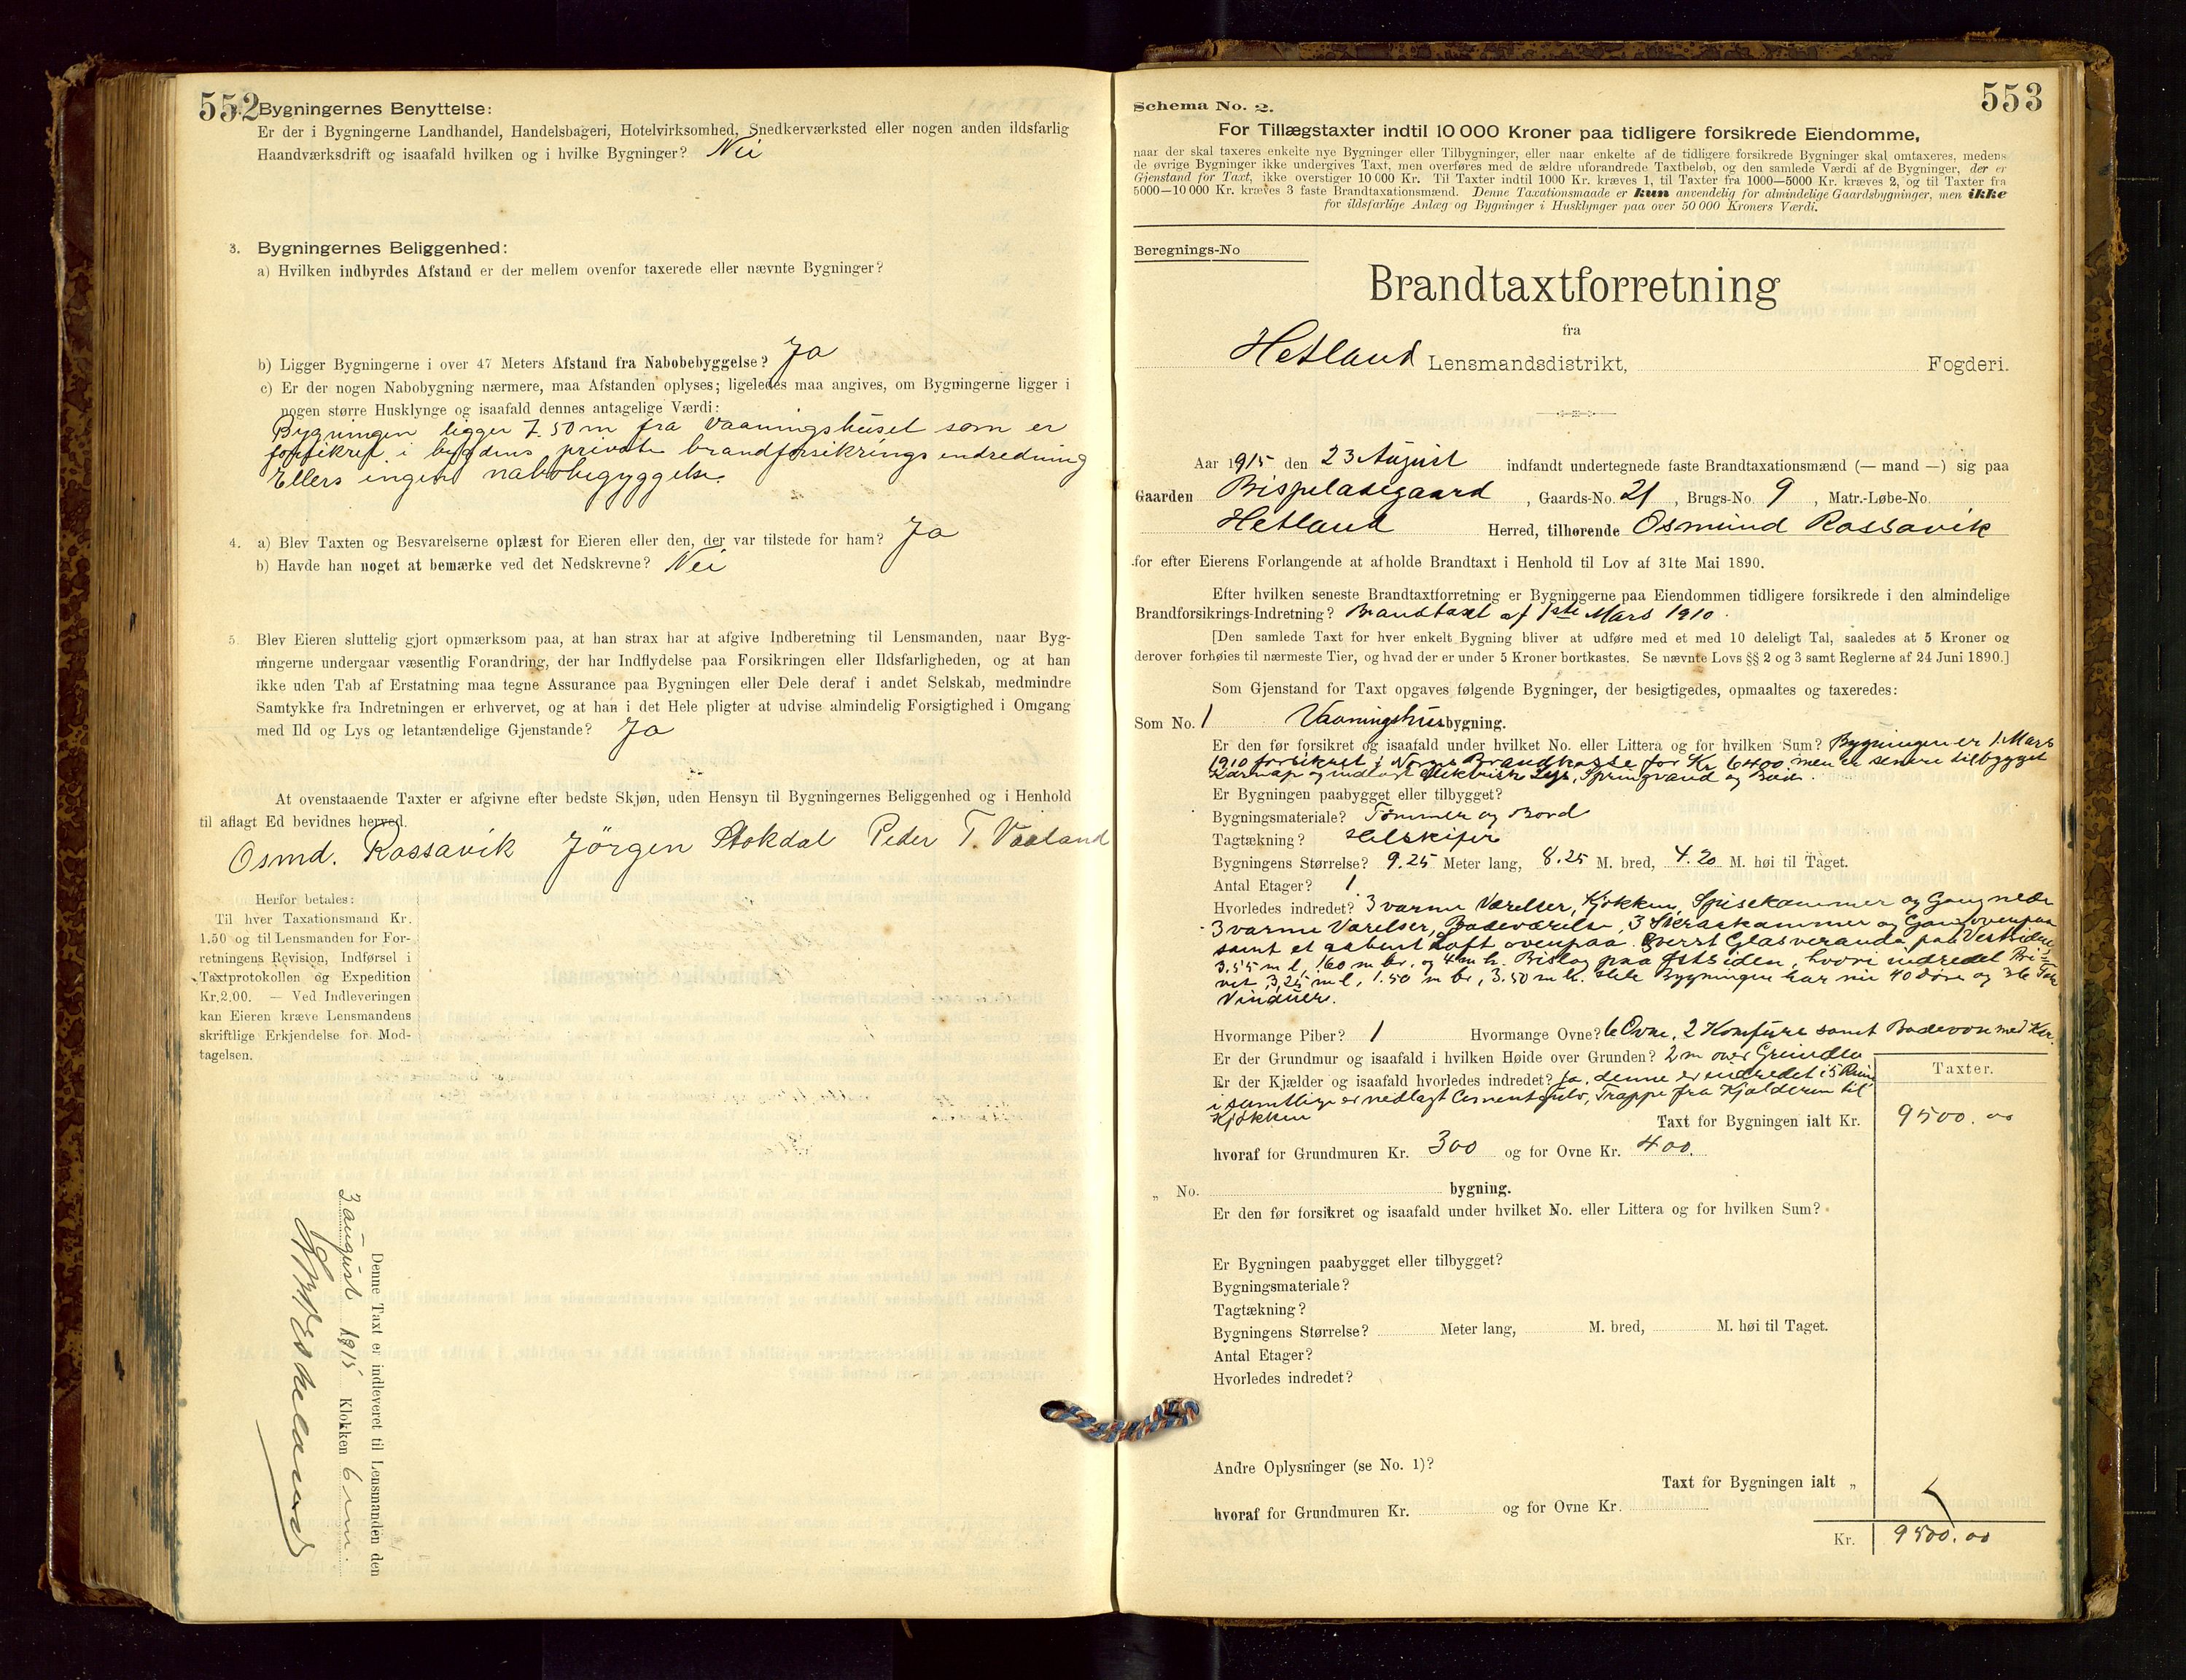 552
Bygningernes Benyttelse:
Er der i Bygningerne Landhandel, Handelsbageri, Hotelvirksomhed, Snedkerværksted eller nogen anden ildsfarlig
Haandværksdrift og isaafald hvilken og i hvilke Bygninger? Nei
3. Bygningernes Beliggenhed:
a) Hvilken indbyrdes Afstand er der mellem ovenfor taxerede eller nævnte Bygninger?
b) Ligger Bygningerne i over 47 Meters Afstand fra Nabobebyggelse? Ja
c) Er der nogen Nabobygning nærmere, maa Afstanden oplyses; ligeledes maa angives, om Bygningerne ligger i
nogen større Husklynge og isaafald dennes antagelige Værdi:
Bygningen ligger 7.50 m fra Vaaningshuset som er
forsikret i bygdens private brandforsikringsindredning
Ellers ingen nabobebyggelse.
4. a) Blev Taxten og Besvarelserne oplæst for Eieren eller den, der var tilstede for ham? Ja
b) Havde han noget at bemærke ved det Nedskrevne? Nei
5. Blev Eieren sluttelig gjort opmærksom paa, at han strax har at afgive Indberetning til Lensmanden, naar Byg-
ningerne undergaar væsentlig Forandring, der har Indflydelse paa Forsikringen eller Ildsfarligheden, og at han
ikke uden Tab af Erstatning maa tegne Assurance paa Bygningen eller Dele deraf i andet Selskab, medmindre
Samtykke fra Indretningen er erhvervet, og at han i det Hele pligter at udvise almindelig Forsigtighed i Omgang
med Ild og Lys og letantændelige Gjenstande? Ja
At ovenstaaende Taxter er afgivne efter bedste Skjøn, uden Hensyn til Bygningernes Beliggenhed og i Henhold
til aflagt Ed bevidnes herved.
Osmd. Rossavik Jörgen Stokdal Peder T. Vaaland
Herfor betales:
Til hver Taxationsmand Kr.
1.50 og til Lensmanden for For-
retningens Revision, Indførsel i
Taxtprotokollen og Expedition
Kr. 2.00. — Ved Indleveringen
kan Eieren kræve Lensmandens
skriftlige Erkjendelse for Mod-
tagelsen.
Denne Taxt er indleveret til Lensmanden den
3 august 1915 Klokken 6 em.
553
Schema No. 2.
For Tillægstaxter indtil 10 000 Kroner paa tidligere forsikrede Eiendomme,
naar der skal taxeres enkelte nye Bygninger eller Tilbygninger, eller naar enkelte af de tidligere forsikrede Bygninger skal omtaxeres, medens
de øvrige Bygninger ikke undergives Taxt, men overføres med de ældre uforandrede Taxtbeløb, og den samlede Værdi af de Bygninger, der er
Gjenstand for Taxt, ikke overstiger 10 000 Kr. Til Taxter indtil 1000 Kr. kræves 1, til Taxter fra 1000—5000 Kr. kræves 2, og til Taxter fra
5000—10 000 Kr. kræves 3 faste Brandtaxationsmænd. Denne Taxationsmaade er kun anvendelig for almindelige Gaardsbygninger, men ikke
for ildsfarlige Anlæg og Bygninger i Husklynger paa over 50 000 Kroners Værdi.
Beregnings-No
Brandtaxtforretning
fra
Hetland Lensmandsdistrikt, Fogderi.
Aar 1915 den 23 August indfandt undertegnede faste Brandtaxationsmænd (— mand —) sig paa
Gaarden Bispeladegaard, Gaards-No. 21, Brugs-No. 9, Matr.-Løbe-No.
Hetland Herred, tilhørende Osmund Rossavik
for efter Eierens Forlangende at afholde Brandtaxt i Henhold til Lov af 31te Mai 1890.
Efter hvilken seneste Brandtaxtforretning er Bygningerne paa Eiendommen tidligere forsikrede i den almindelige
Brandforsikrings-Indretning? Brandtaxt af 1ste Mars 1910.
[Den samlede Taxt for hver enkelt Bygning bliver at udføre med et med 10 deleligt Tal, saaledes at 5 Kroner og
derover forhøies til nærmeste Tier, og hvad der er under 5 Kroner bortkastes. Se nævnte Lovs §§ 2 og 3 samt Reglerne af 24 Juni 1890.]
Som Gjenstand for Taxt opgaves følgende Bygninger, der besigtigedes, opmaaltes og taxeredes:
Som No. 1 Vaaningshus bygning.
Er den før forsikret og isaafald under hvilket No. eller Littera og for hvilken Sum? Bygningen er 1. Mars
1910 forsikret i Norges Brandkasse for Kr 6400 men er senere tilbygget
Karnap og indlagt elektrisk Lys, Springvand og Bad.
Er Bygningen paabygget eller tilbygget?
Bygningsmateriale? Tömmer og Bord
Tagtækning? Helskifer
Bygningens Størrelse? 9.25 Meter lang, 8.25 M. bred, 4.20 M. høi til Taget.
Antal Etager? 1
Hvorledes indredet? 3 varme Værelser, Kjøkken, Spisekammer og Gang nede
3 varme Værelser, Badeværelse, 3 Skraakammer og Gang ovenpaa
samt et aabent Loft ovenpaa. Glasveranda paa Vestsiden
3.55 m l, 1.60 m br. og 4 m h. Bislag paa østsiden, hvori indredet Pri-
vet, 3,25 m l, 1.50 m br, 3.50 m h. Hele Bygningen har nu 40 döre og 36 Fag
Vinduer.
Hvormange Piber? 1 Hvormange Ovne? 6 Ovne, 2 Komfure samt Badeovn med Kar.
Er der Grundmur og isaafald i hvilken Høide over Grunden? 2 m over Grunden
Er der Kjælder og isaafald hvorledes indredet? Ja, denne er indredet i 5 Rum
i samtlige er nedlagt Cementgulv, Trappe fra Kjælderen til
Kjøkken
Taxter.
Taxt for Bygningen ialt Kr. 9500.00
hvoraf for Grundmuren Kr. 300 og for Ovne Kr. 400.
„ No. bygning.
Er den før forsikret og isaafald under hvilket No. eller Littera og for hvilken Sum?
Er Bygningen paabygget eller tilbygget?
Bygningsmateriale?
Tagtækning?
Bygningens Størrelse? Meter lang, M. bred, M. høi til Taget.
Antal Etager?
Hvorledes indredet?
Andre Oplysninger (se No. 1)?
Taxt for Bygningen ialt „
hvoraf for Grundmuren Kr. og for Ovne Kr.
Kr. 9500.00